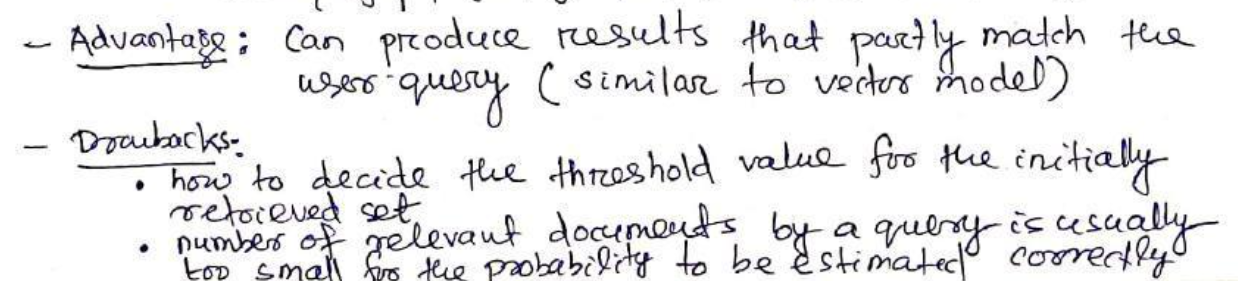 - Advantage: Can produce results that partly match the
user query (similar to vector model)
- Drawbacks-
• how to decide the threshold value for the initially
retrieved set
• number of relevant documents by a query is usually
too small for the probability to be estimated correctly